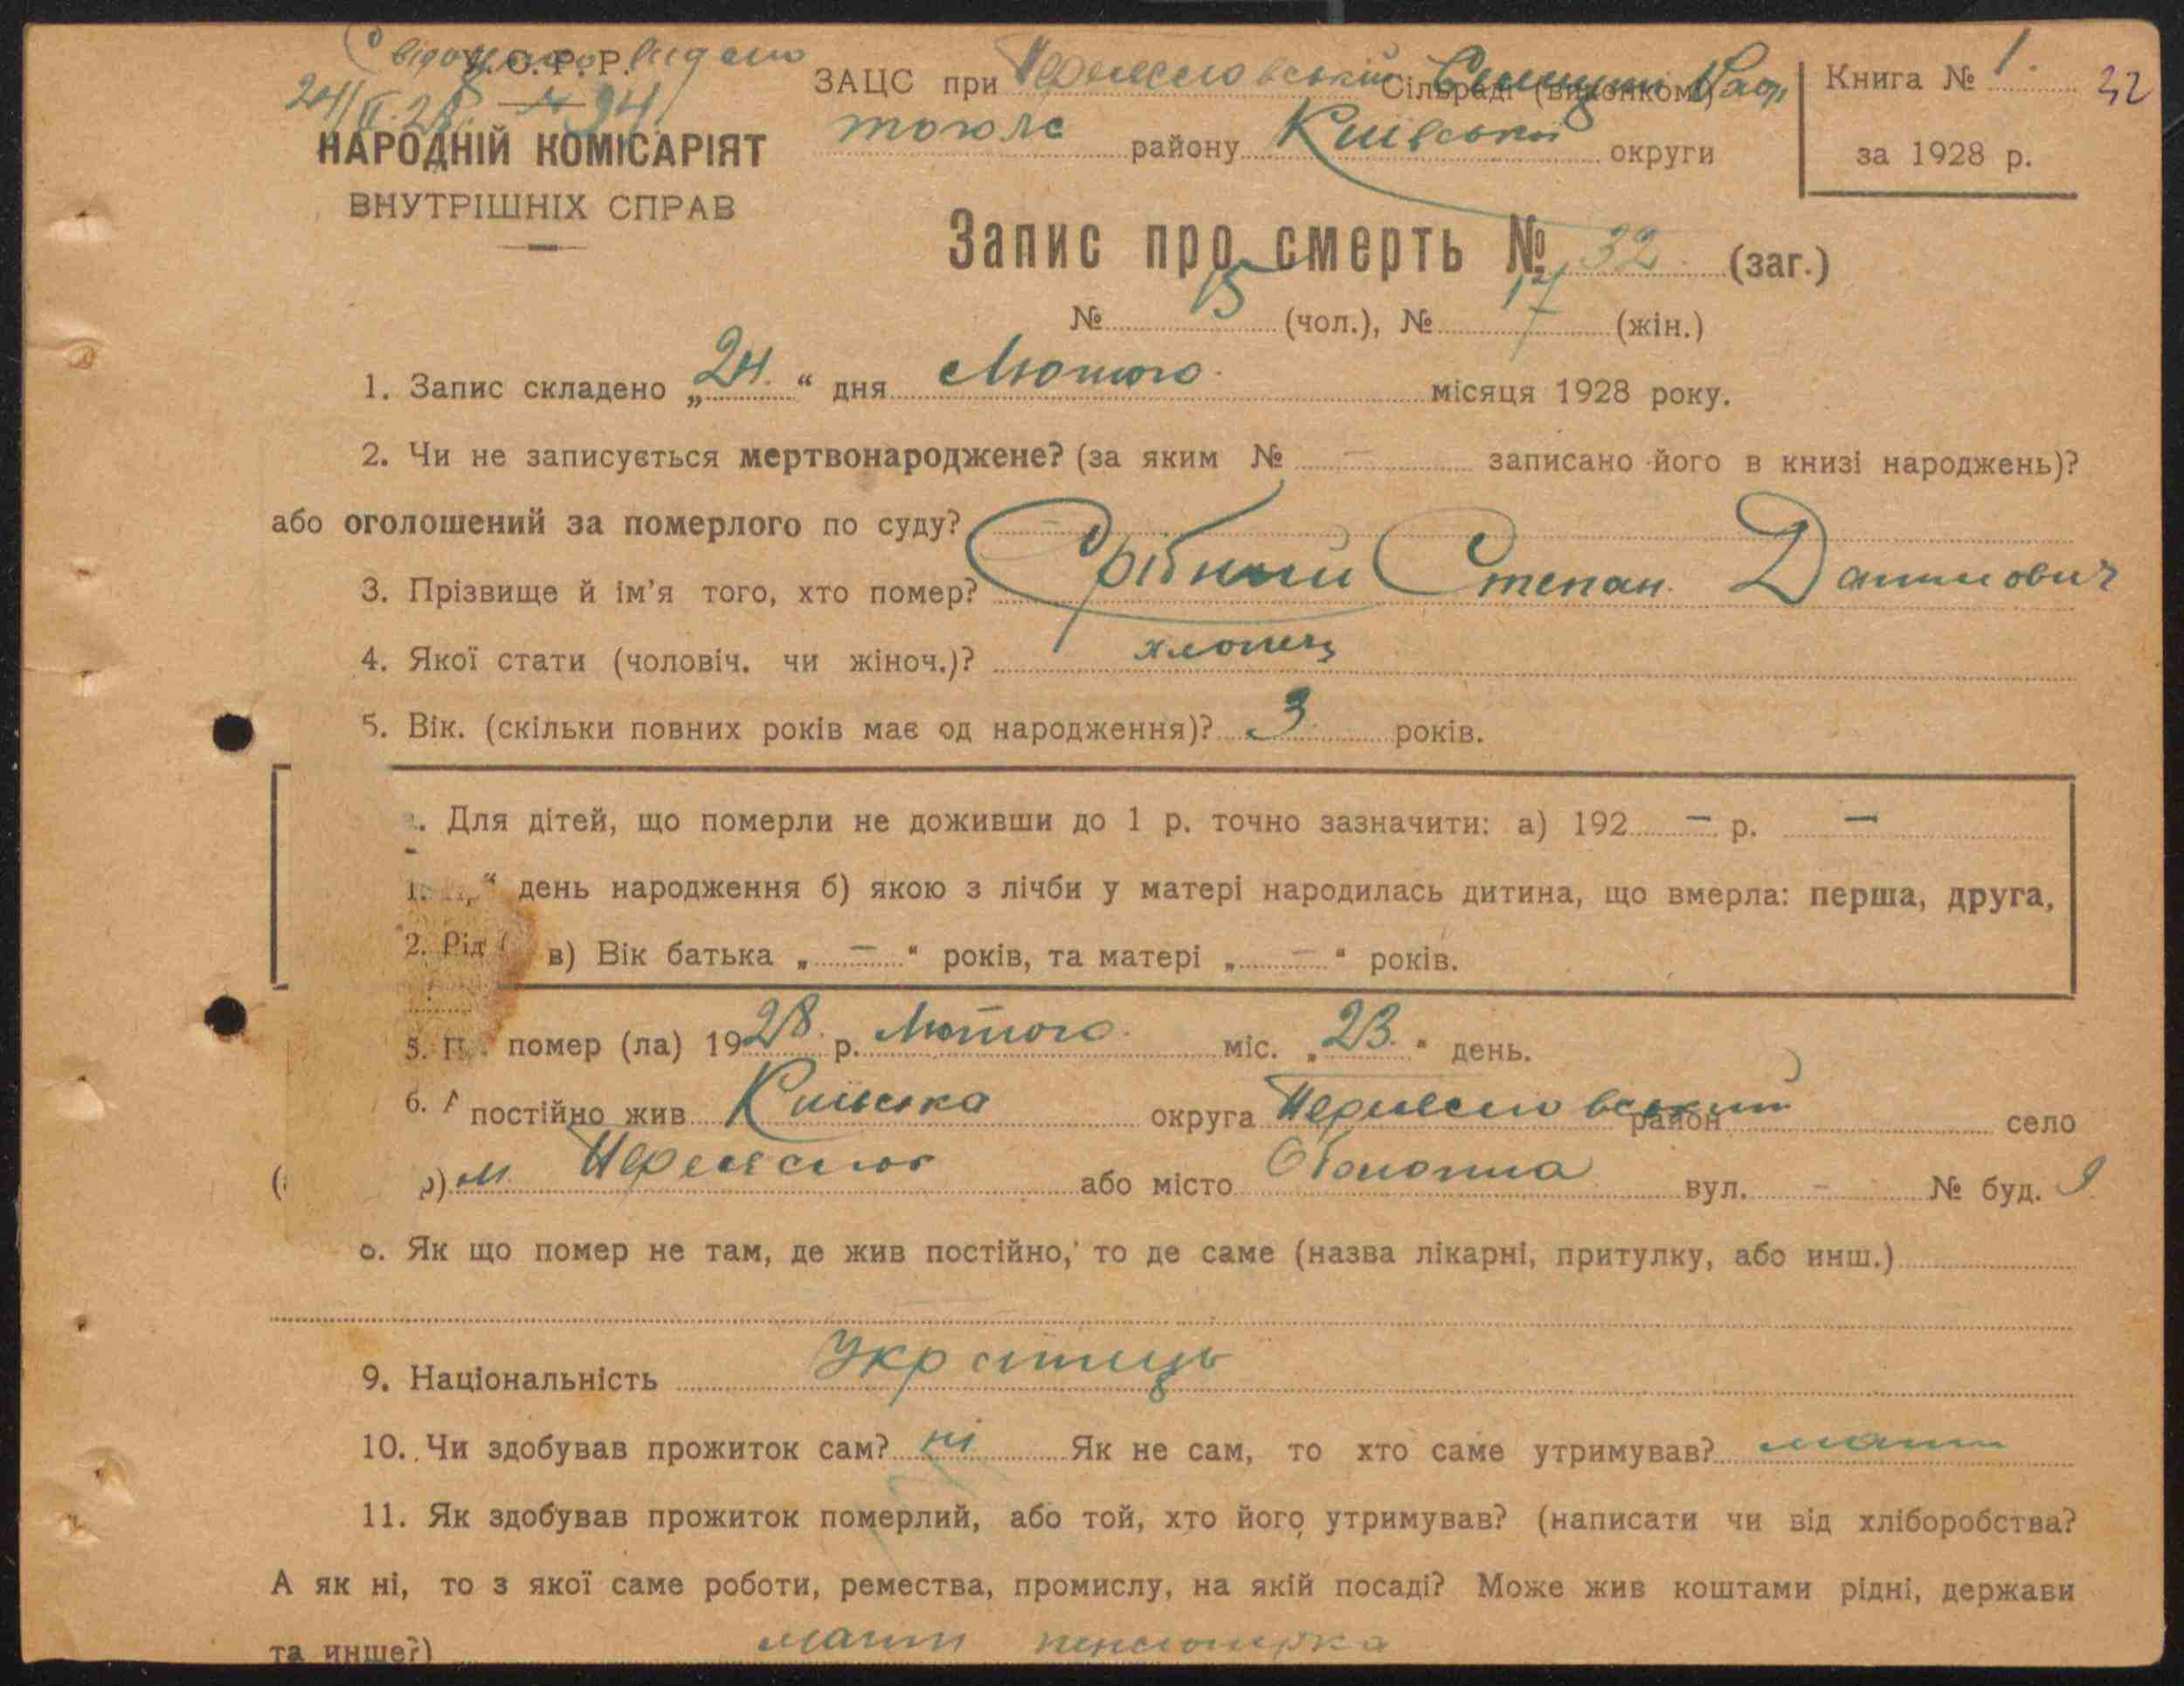 Свідоцтво видано
У.С.Р.Р.
24/II.28. № 94
НАРОДНІЙ КОМІСАРІЯТ
ВНУТРІШНІХ СПРАВ
ЗАЦС при Переяславській Сільраді (виконкомі)
району Київської округи
Книга № 1. 32
за 1928 р.
Запис про смерть № 32 (заг.)
№ 15 (чол.), № 17 (жін.)
1. Запис складено „24.“ дня Лютого місяця 1928 року.
2. Чи не записується мертвонароджене? (за яким № – записано його в книзі народжень)?
або оголошений за померлого по суду? –
3. Прізвище й ім'я того, хто помер? Срібний Степан Данилович
4. Якої стати (чоловіч. чи жіноч.)? хлопець
5. Вік. (скільки повних років має од народження)? 3 років.
. Для дітей, що померли не доживши до 1 р. точно зазначити: а) 192 – р. –
1. „ “ день народження б) якою з лічби у матері народилась дитина, що вмерла: перша, друга,
2. Рід в) Вік батька „ – “ років, та матері „ – “ років.
5. П помер (ла) 1928 р. Лютого міс. „23.“ день.
6. постійно жив Київська округа Переяславський район село
м. Переяслов або місто вул. – № буд. 9
8. Як що помер не там, де жив постійно, то де саме (назва лікарні, притулку, або инш.)
9. Національність Українець
10. Чи здобував прожиток сам? ні Як не сам, то хто саме утримував? мати
11. Як здобував прожиток померлий, або той, хто його утримував? (написати чи від хліборобства?
А як ні, то з якої саме роботи, ремества, промислу, на якій посаді? Може жив коштами рідні, держави
та инше?) мати пенсіонерка